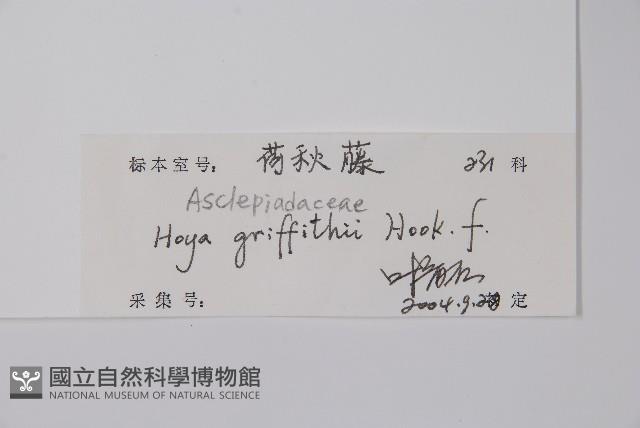 标本室号: 荷秋藤 231 科
Asclepiadaceae
Hoya griffithii Hook. f.
采集号: 2004.9. 定
國立自然科學博物館
NATIONAL MUSEUM OF NATURAL SCIENCE